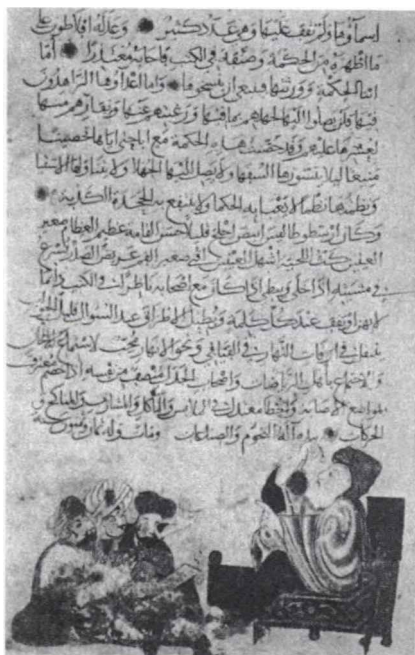 اسماؤها ولم نقف عليها وهي عدد كثير وعذله افلاطون على
ما اظهره من الحكمة وصنفه في الكتب فاجابه معتذرا اما
ابنا الحكمة وورثتها فينبغي ان واما اعداؤها الزاهدون
فيها فلن يصلوا اليها لجهلهم بما فيها ورغبتهم عنها ونفارهم منها
لعسرها عليهم وقد حصنت هذه الحكمة مع اباحتي اياها تحصينا
منيعا ليلا يتسورها السفها ولا يصل اليها الجهلا ولا يتناولها الاشقيا
ونظمتها نظما لا يعبا به الحكما ولا ينتفع به الجحدة الكذبة
وكان ارسطوطاليس ابيض اجلح قليلا حسن القامة عظيم العظام صغير
العينين كث اللحية اشهل العينين اقنى صغير الفم عريض الصدر يسرع
في مشيته اذا خلى ويبطي اذا كان مع اصحابه ناظرا في الكتب دايما
لا يهذر ويقف عند كل كلمة ويطيل الاطراق عند السوال قليل الجواب
في اوقات النهار في الفيافي ونحو الانهار محب لاستماع الالحان
والاجتماع باهل الرياضات واصحاب الجدل منصف من نفسه اذا خصم معترف
بمواضع الاصابة والخطا معتدل في الملابس والمآكل والمشارب والمناكح و
الحركات بيده آلة النجوم والساعات ومات وله ثمان وستون سنة